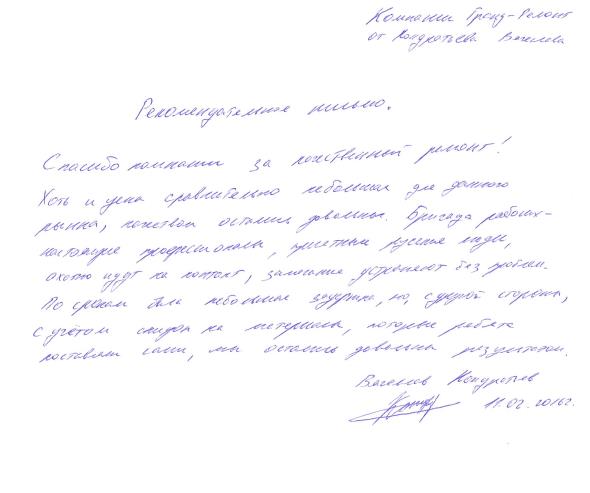 Компании Гранд-Ремонт
от Кондратьева Вячеслава
Рекомендательное письмо.
Спасибо компании за качественный ремонт!
Хоть и цена сравнительно небольшая для данного
рынка, качеством остались довольны. Бригада рабочих -
настоящие профессионалы, приятные русские люди,
охотно идут на контакт, замечания устраняют без проблем.
По срокам была небольшая задержка, но, с другой стороны,
с учётом скидок на материалы, которые ребята
поставляли сами, мы остались довольны результатом.
Вячеслав Кондратьев
11.02.2016г.